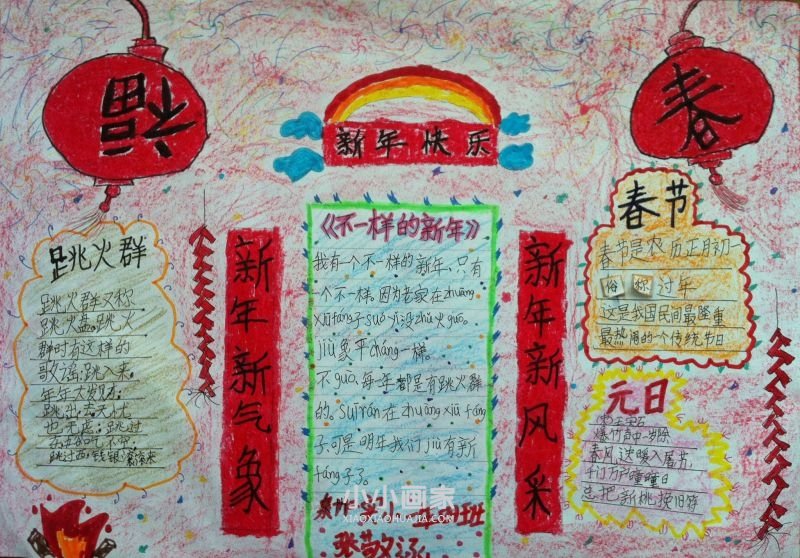 福
春
新年快乐
跳火群
跳火群又称
跳火盘。跳火
群时有这样的
歌谣:跳入来。
年年大发财;
跳出去,无忧
也无虑;跳过
跳过西,钱银滚滚来
新年新气象
《不一样的新年》
我有一个不一样的新年,只有
一个不一样。因为老家在zhuāng
xiūfáng子suǒ yǐ没zhǔ火guō。
jiù象平cháng一样。
不guò,每年都是有跳火群
的。Suī rán在zhuāng xiū fáng
子,可是明年我们jiù有新
fáng子了。
新年新风采
春节
春节是农历正月初一
俗称过年
这是我国民间最隆重
最热闹的一个传统节日
元日
爆竹声中一岁除
春风送暖入屠苏
千门万户曈曈日
总把新桃换旧符
小小画家
XIAOXIAOHUAJIA.COM